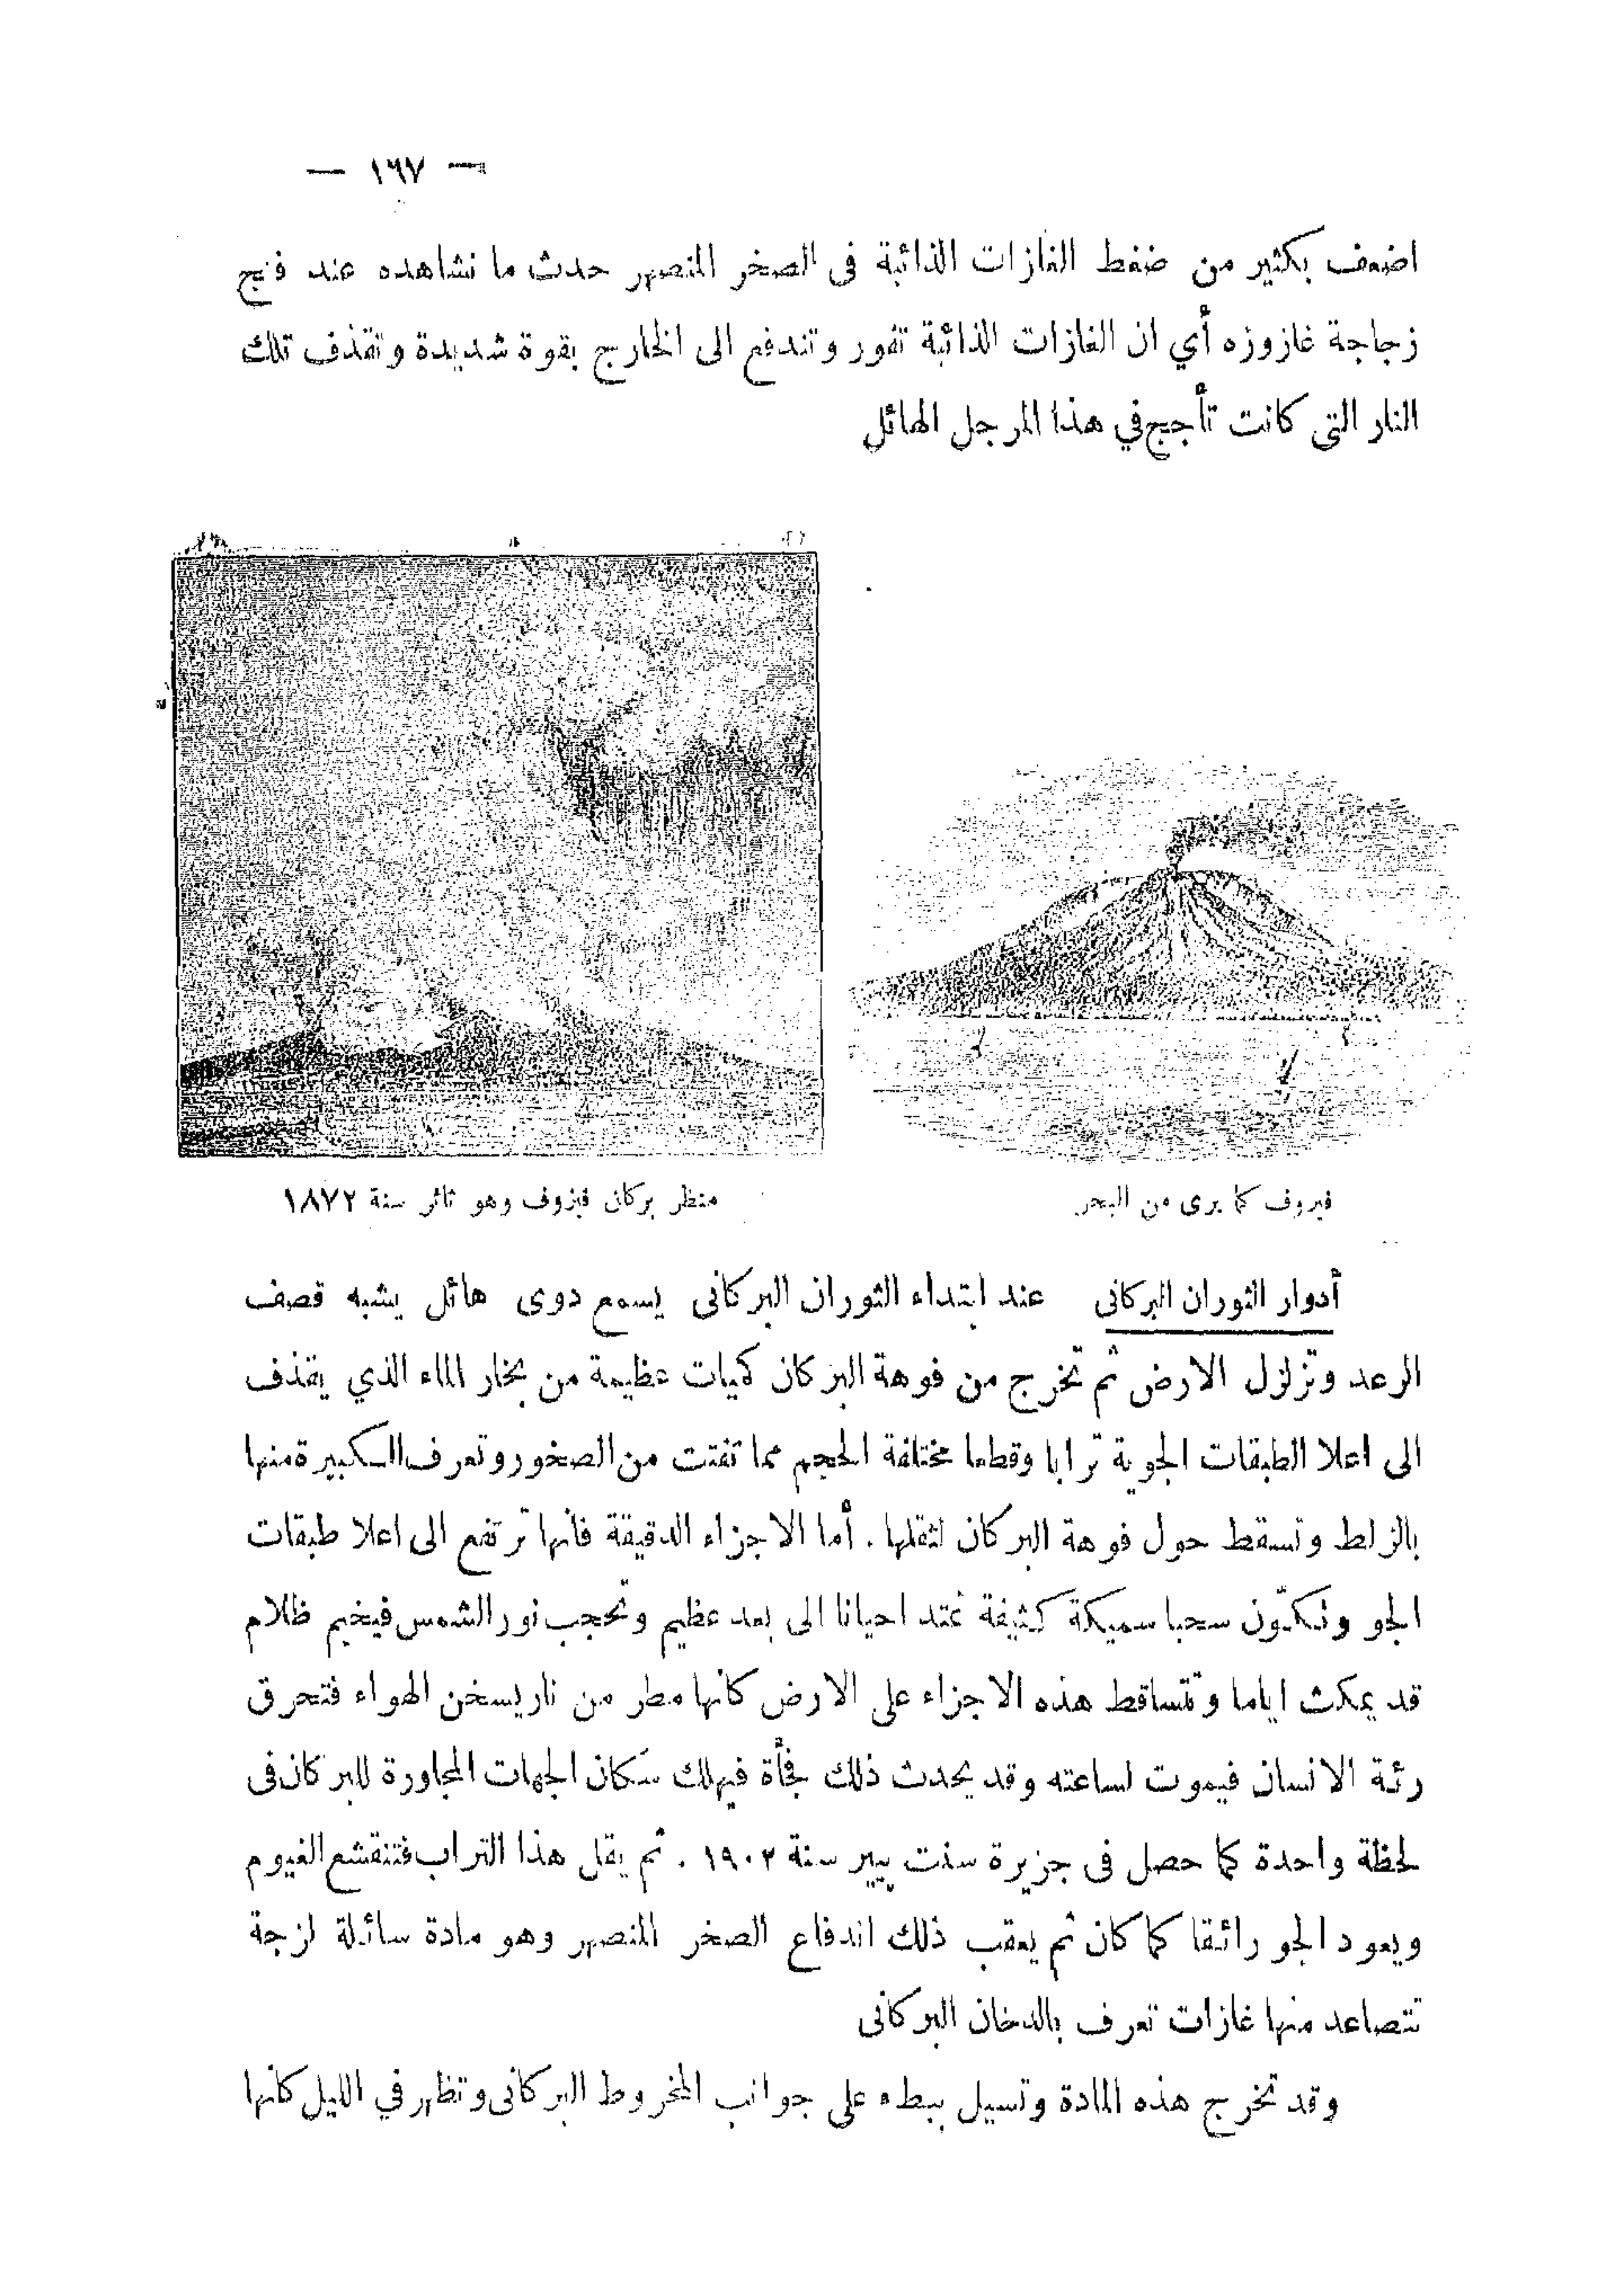 — ١٦٧ —
اضعف بكثير من ضغط الغازات الذائبة فى الصخر المنصهر حدث ما نشاهده عند فتح
زجاجة غازوزه أي ان الغازات الذائبة تفور وتندفع الى الخارج بقوة شديدة وتقذف تلك
النار التى كانت تأجج في هذا المرجل الهائل
فيزوف كما يرى من البحر
منظر بركان فيزوف وهو ثائر سنة ١٨٧٢
أدوار الثوران البركانى عند ابتداء الثوران البركانى يسمع دوى هائل يشبه قصف
الرعد وتزلزل الارض ثم تخرج من فوهة البركان كميات عظيمة من بخار الماء الذي يقذف
الى اعلا الطبقات الجوية ترابا وقطعا مختلفة الحجم مما تفتت من الصخور وتعرف الكبيرة منها
بالزلط وتسقط حول فوهة البركان لثقلها . أما الاجزاء الدقيقة فانها ترتفع الى اعلا طبقات
الجو وتكوّن سحبا سميكة كثيفة تمتد احيانا الى بعد عظيم وتحجب نور الشمس فيخيم ظلام
قد يمكث اياما وتتساقط هذه الاجزاء على الارض كانها مطر من نار يسخن الهواء فتحرق
رئة الانسان فيموت لساعته وقد يحدث ذلك فجأة فيهلك سكان الجهات المجاورة للبركان فى
لحظة واحدة كما حصل فى جزيرة سنت بيير سنة ١٩٠٢ . ثم يقل هذا التراب فتنقشع الغيوم
ويعود الجو رائقا كما كان ثم يعقب ذلك اندفاع الصخر المنصهر وهو مادة سائلة لزجة
تتصاعد منها غازات تعرف بالدخان البركانى
وقد تخرج هذه المادة وتسيل ببطء على جوانب المخروط البركانى وتظهر في الليل كانها